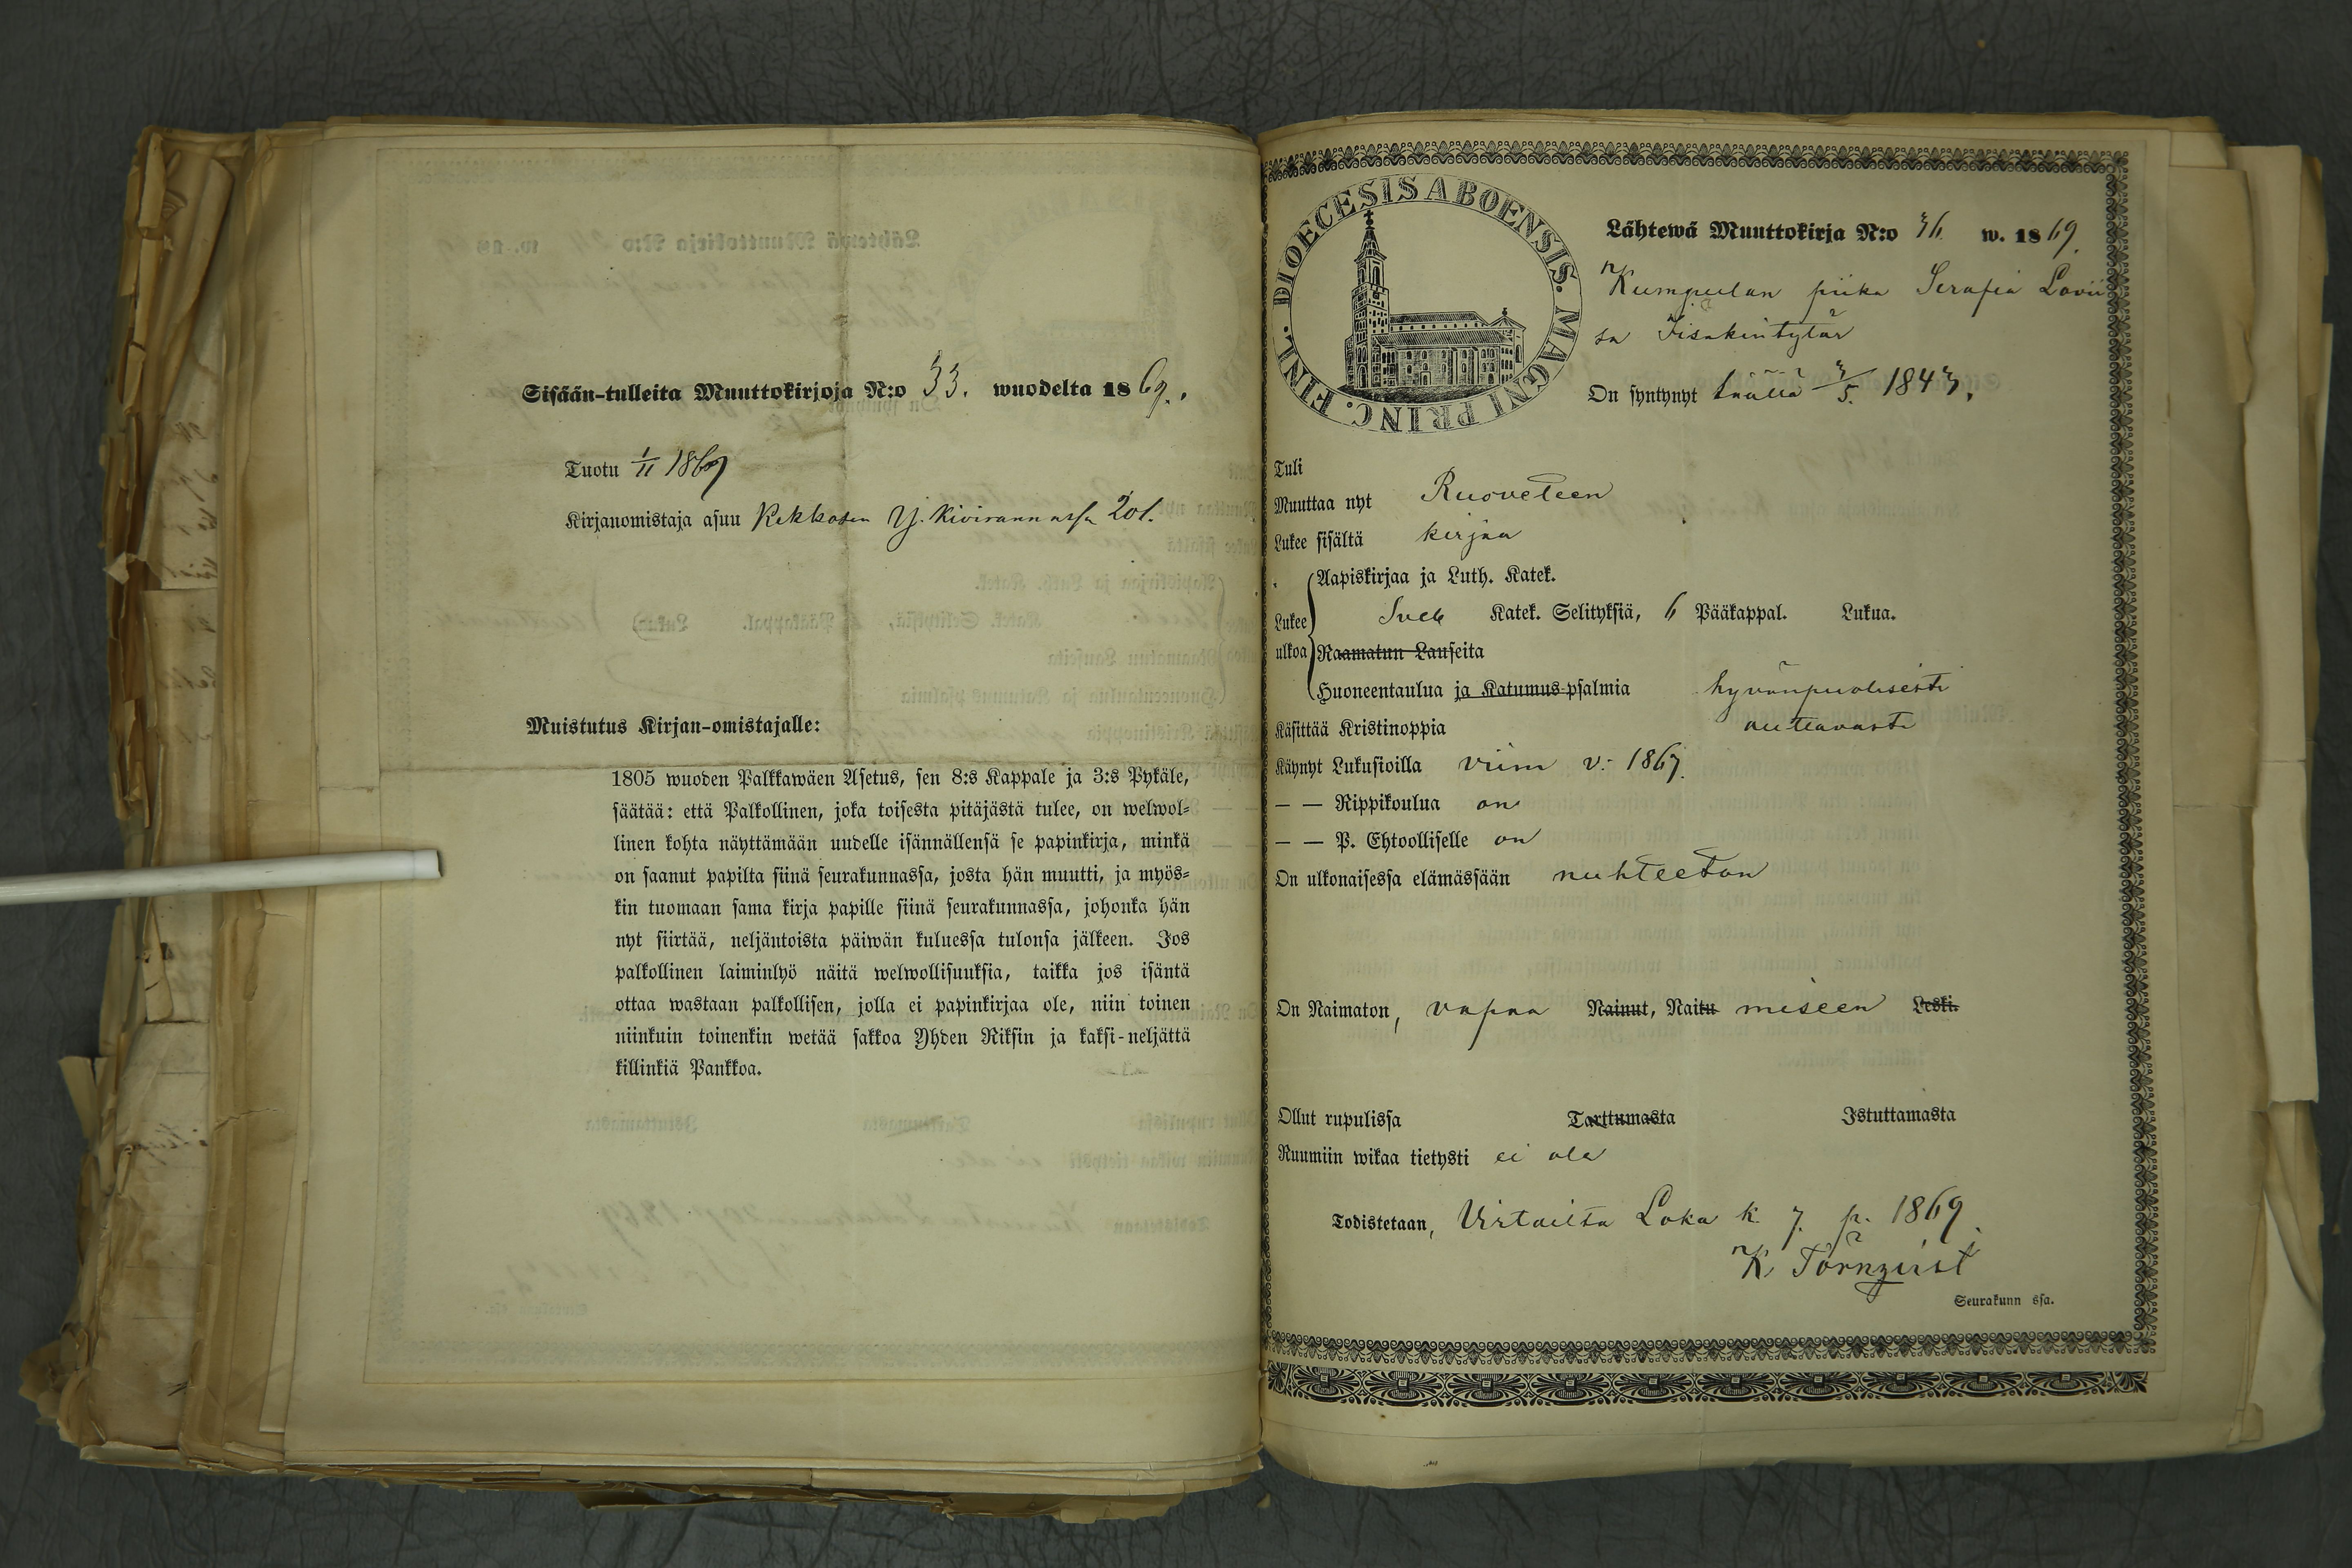 Sisään-tulleita Muuttokirjoja N:o 33. wuodelta 1869.
Tuotu 1/11 1869
Kirjanomistaja asuu Kekkosen Y. Kivirannassa 201.
Muistutus Kirjan-omistajalle:
1805 wuoden Palkkawäen Asetus, sen 8:s Kappale ja 3:s Pykäle,
säätää: että Palkollinen, joka toisesta pitäjästä tulee, on welwol-
linen kohta näyttämään uudelle isännällensä se papinkirja, minkä
on saanut papilta siinä seurakunnassa, josta hän muutti, ja myös-
kin tuomaan sama kirja papille siinä seurakunnassa, johonka hän
nyt siirtää, neljäntoista päiwän kuluessa tulonsa jälkeen. Jos
palkollinen laiminlyö näitä welwollisuuksia, taikka jos isäntä
ottaa wastaan palkollisen, jolla ei papinkirjaa ole, niin toinen
niinkuin toinenkin wetää sakkoa Yhden Riksin ja kaksi-neljättä
killinkiä Pankkoa.
DIOECESIS ABOENSIS. MAGNI PRINC. FINL.
Lähtewä Muuttokirja N:o 36 w. 1869.
Kumpulan piika Serafia Lovii
sa Iisakintytär
On syntynyt täällä 3/5. 1843.
Tuli
Muuttaa nyt Ruoveteen
Lukee sisältä kirjaa
Lukee ulkoa
Aapiskirjaa ja Luth. Katek.
Sveb Katek. Selityksiä, 6 Pääkappal. Lukua.
Raamatun Lauseita
Huoneentaulua ja Katumus-psalmia hyvänpuolisesti
Käsittää Kristinoppia auttavasti
Käynyt Lukusioilla viim v: 1867.
— — Rippikoulua on
— — P. Ehtoolliselle on
On ulkonaisessa elämässään nuhteeton
On Naimaton, vapaa Nainut, Naitu miseen Leski.
Ollut rupulissa Tarttumasta Istuttamasta
Ruumiin wikaa tietysti ei ole
Todistetaan, Virtailta Loka k. 7. p. 1869.
K Törnqvist
Seurakunn sSa.